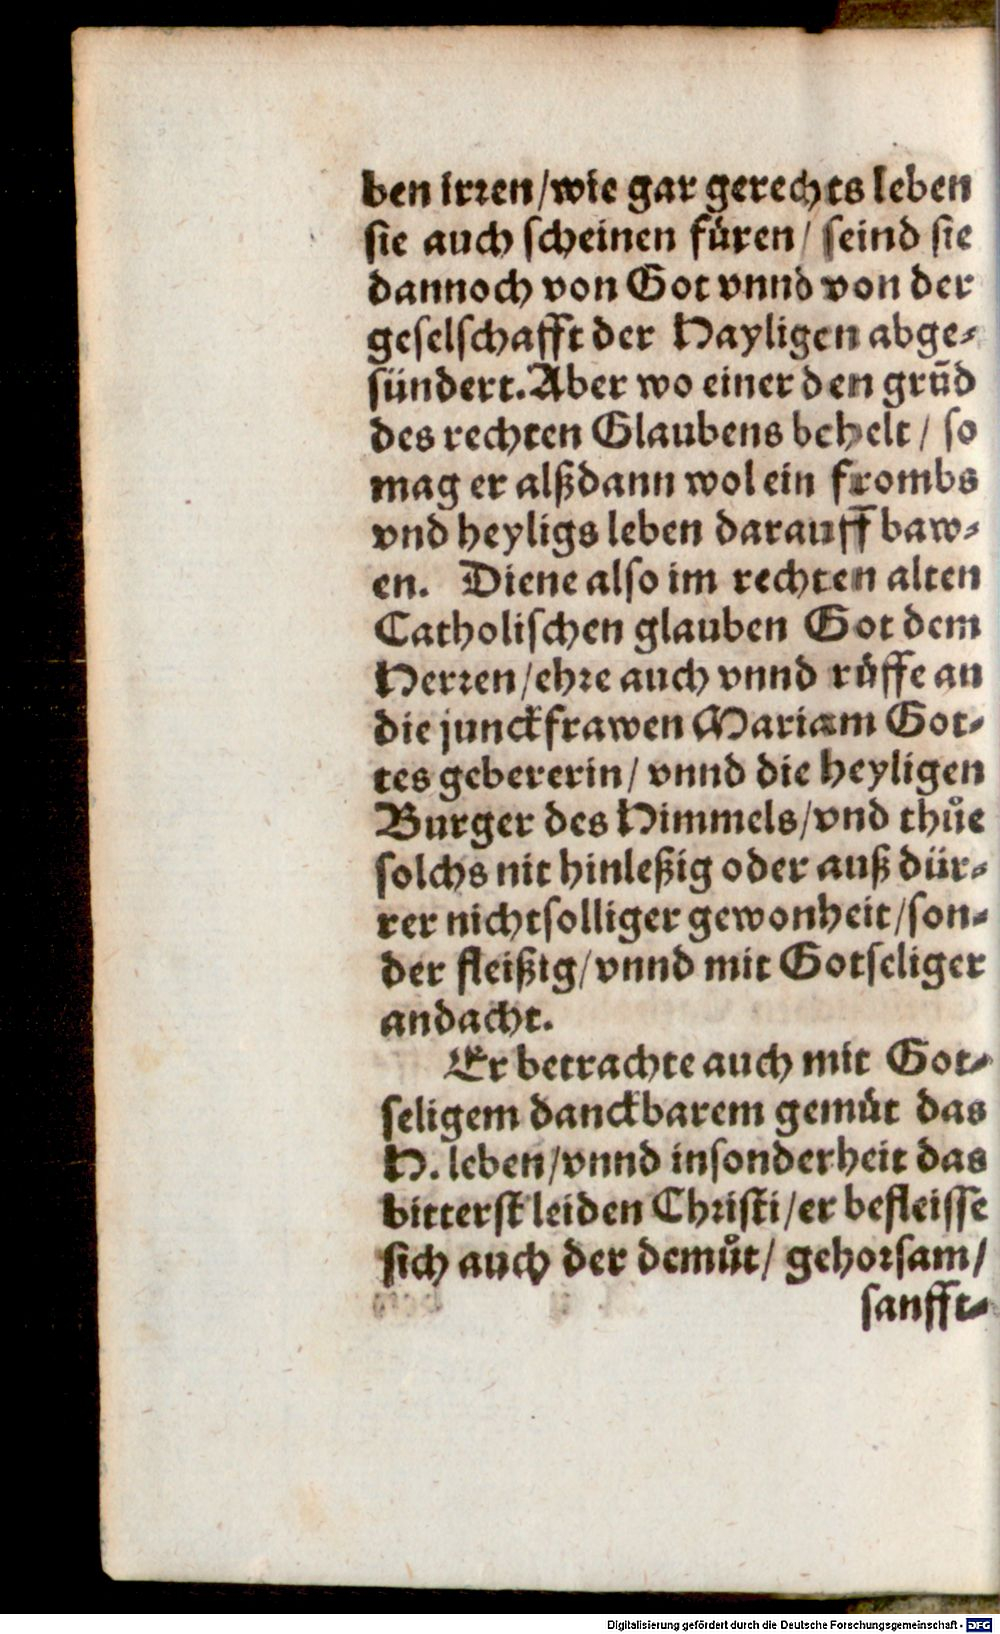 ben irren/wie gar gerechts leben
sie auch scheinen füren/ seind sie
dannoch von Got vnnd von der
geselschafft der Hayligen abge-
sündert. Aber wo einer den grūd
des rechten Glaubens behelt/ so
mag er alßdann wol ein frombs
vnd heyligs leben darauff baw-
en. Diene also im rechten alten
Catholischen glauben Got dem
Herren/ehre auch vnnd rüffe an
die junckfrawen Mariam Got-
tes gebererin/ vnnd die heyligen
Burger des Himmels/vnd thůe
solchs nit hinleßig oder auß dür-
rer nichtsolliger gewonheit/son-
der fleißig/vnnd mit Gotseliger
andacht.
Er betrachte auch mit Got-
seligem danckbarem gemüt das
H. leben/vnnd insonderheit das
bitterst leiden Christi/er befleisse
sich auch der demůt/ gehorsam/
sanfft-
Digitalisierung gefördert durch die Deutsche Forschungsgemeinschaft - DFG